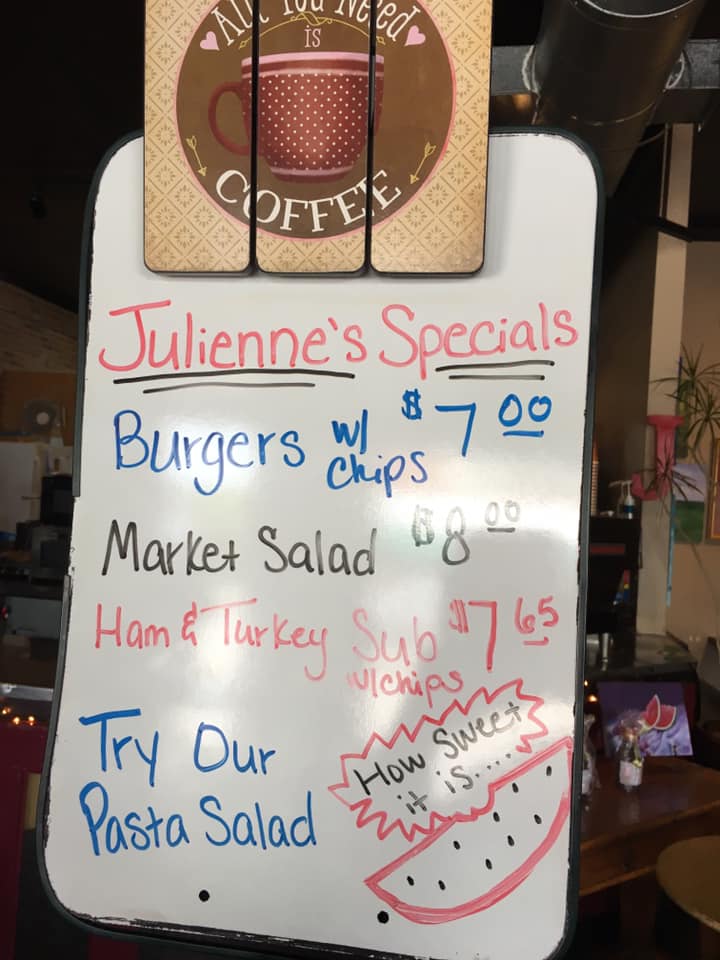 All You Need
is
COFFEE
Julienne's Specials
Burgers w/ chips $7 00
Market Salad $8 00
Ham & Turkey Sub $7 65
w/chips
Try Our
Pasta Salad
How Sweet
it is....